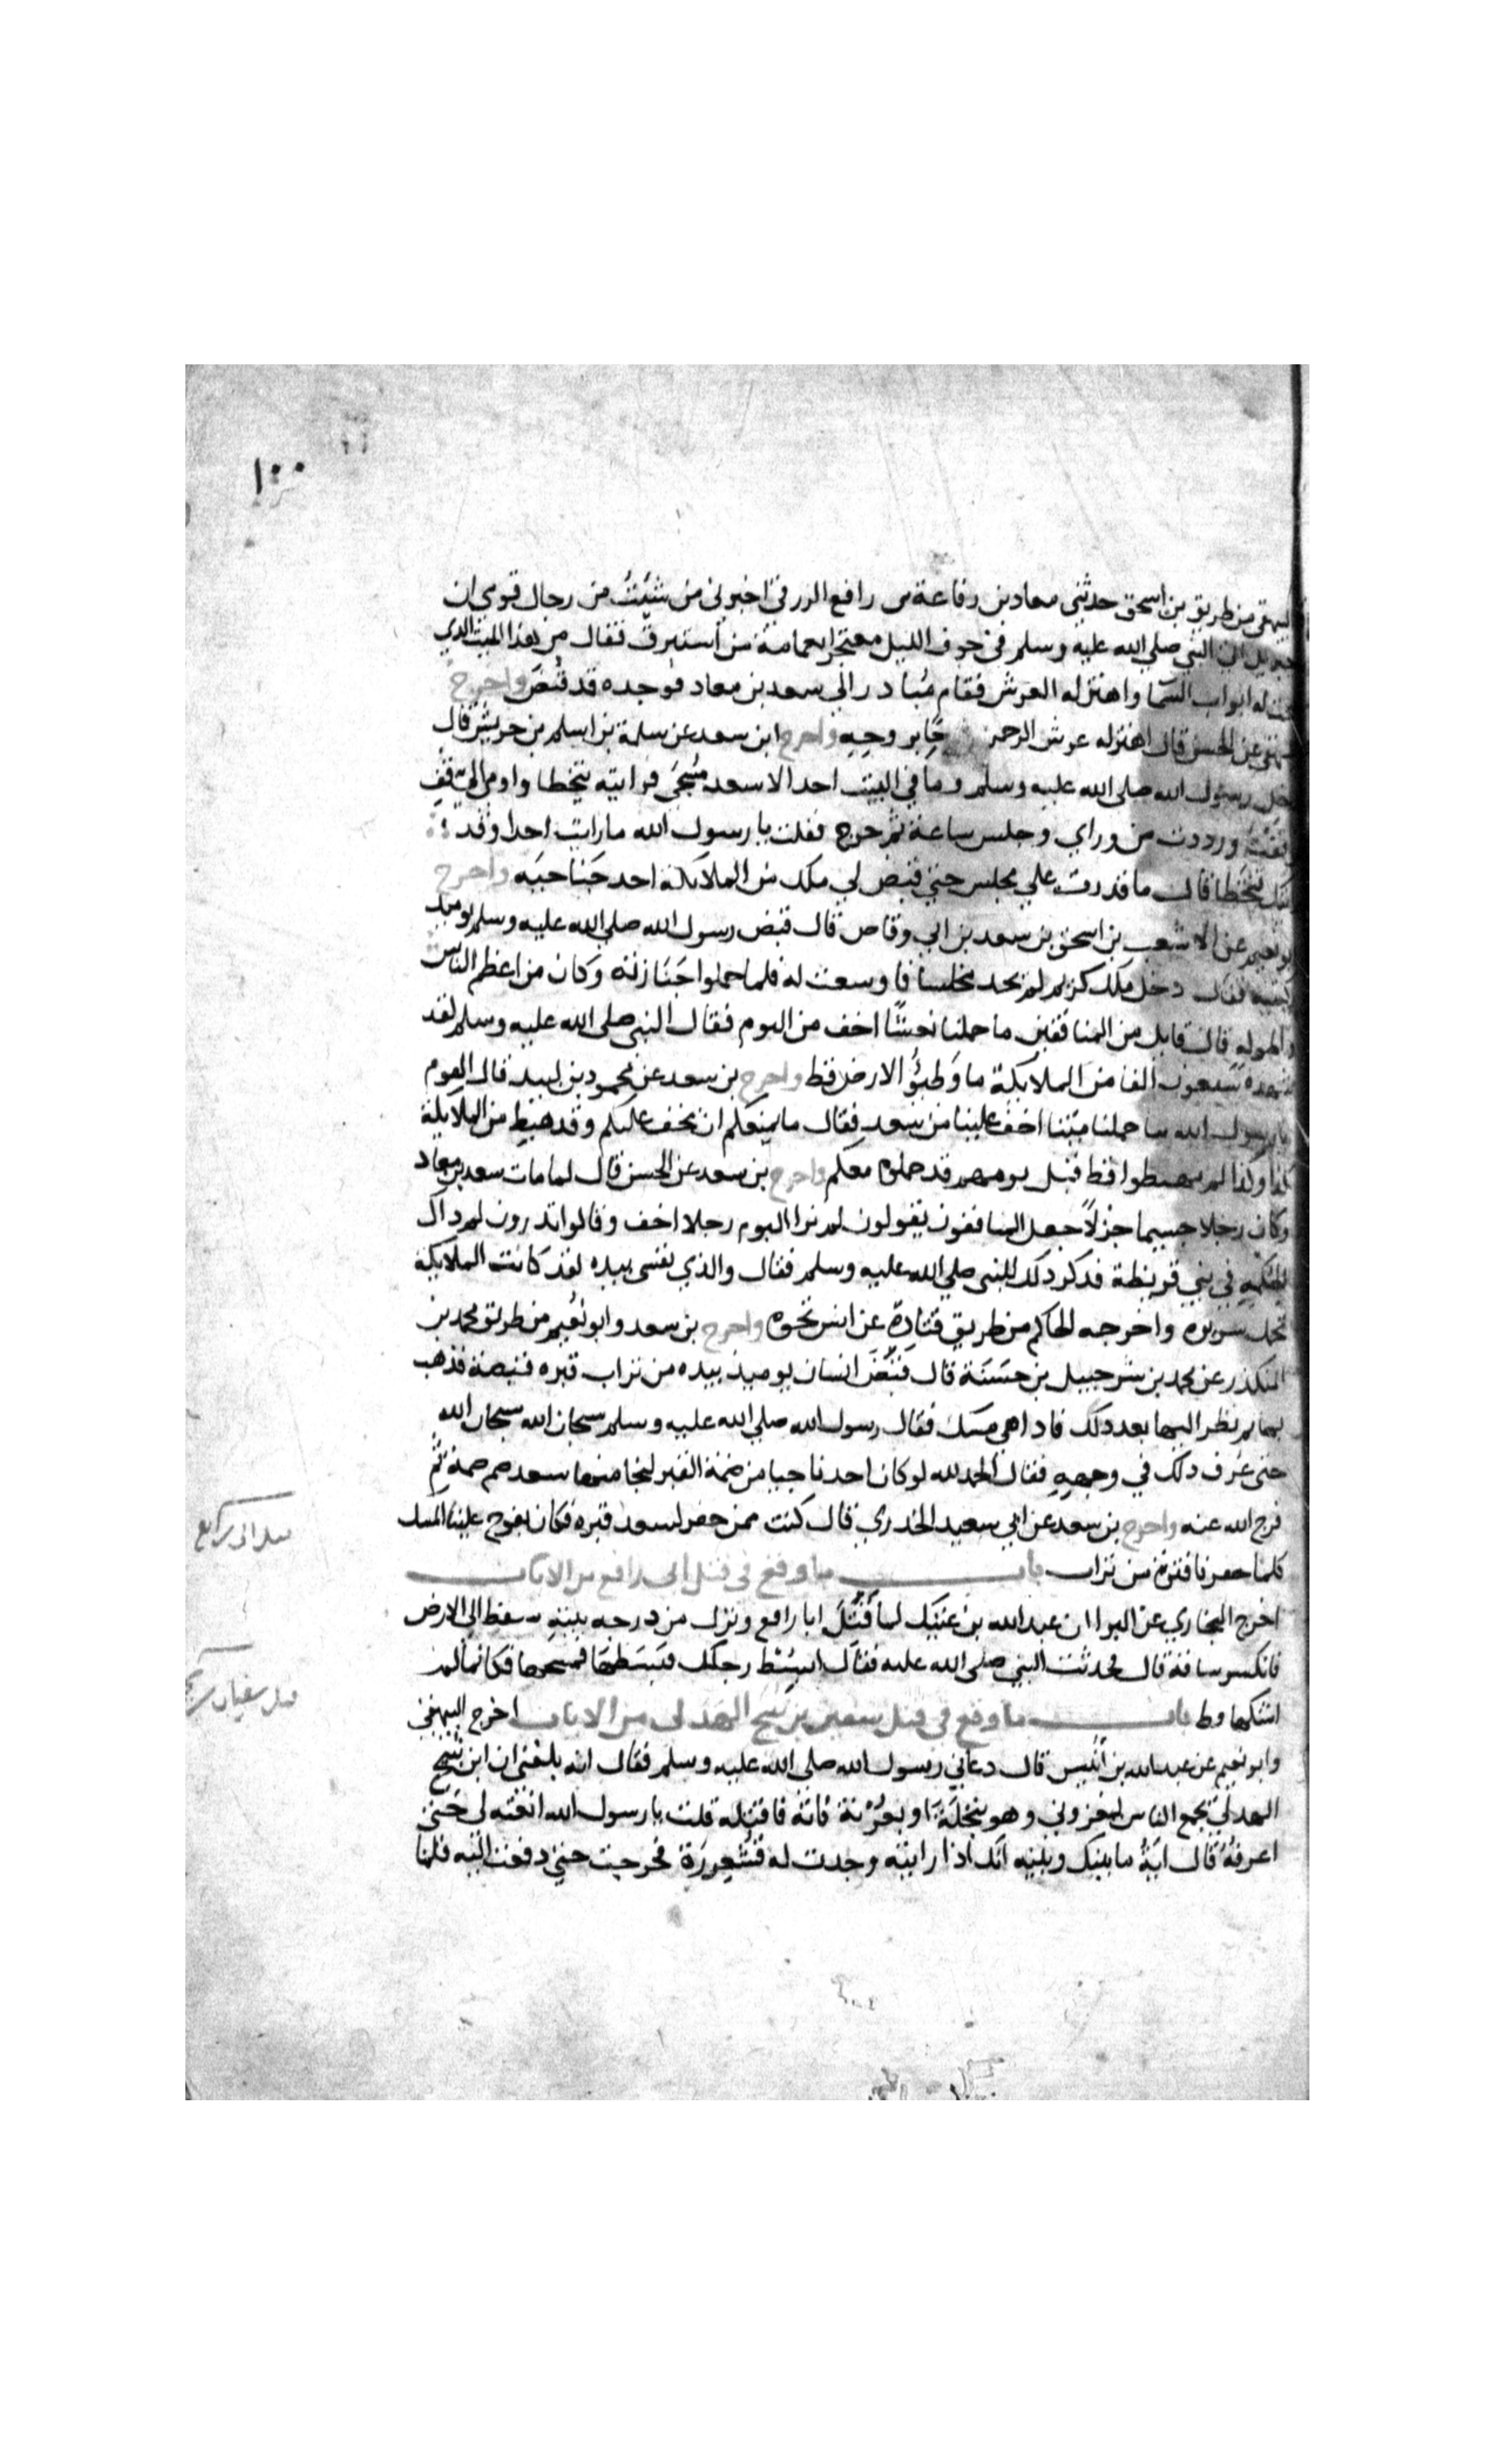 ١٠٠
البيهقي من طريق بن اسحق حدثني معاذ بن رفاعة بن رافع الزرقي اخبرني من شئت من رجال قومي ان
جبريل اتي النبي صلي الله عليه وسلم في جوف الليل معتجرا بعمامة من استبرق فقال من هذا الميت الذي
فتحت له ابواب السما واهتز له العرش فقام مبادرا الي سعد بن معاذ فوجده قد قبض واخرج
البيهقي عن الحسن قال اهتز له عرش الرحمن بروحه واخرج ابن سعد عن سلمة بن اسلم بن حريش قال
دخل رسول الله صلي الله عليه وسلم وما في البيت احد الا سعد مسجى فرايته يتخطا واومى الي قف
فوقفت ورددت من وراي وجلس ساعة ثم خرج فقلت يا رسول الله ما رايت احدا وقد
رايتك تتخطا قال ما قدرت علي مجلس حتي قبض لي ملك من الملايكة احد جناحيه واخرج
ابو نعيم عن الاشعب بن اسحق بن سعد بن ابي وقاص قال قبض رسول الله صلي الله عليه وسلم يوميذ
ركبتيه فقال دخل ملك كريم لم يجد مجلسا فاوسعت له فلما حملوا جنازته وكان من اعظم الناس
واطوله قال قايل من المنافقين ما حملنا نعشا اخف من اليوم فقال النبي صلي الله عليه وسلم لقد
شهده سبعون الفا من الملايكة ما وطيؤا الارض قط واخرج بن سعد عن محمود بن لبيد قال القوم
يا رسول الله ما حملنا ميتا اخف علينا من سعد فقال ما يمنعكم ان يخف عليكم وقد هبط من الملايكة
كذا وكذا لم يهبطوا قط قبل يومهم قد حملوه معكم واخرج بن سعد عن الحسن قال لما مات سعد بن معاذ
وكان رجلا جسيما جزلا جعل المنافقون يقولون لم نرا اليوم رجلا اخف وقالوا اتدرون لم ذاك
لحكمه في بني قريظة فذكر ذلك للنبي صلي الله عليه وسلم فقال والذي نفسي بيده لقد كانت الملايكة
تحمل سريره واخرجه الحاكم من طريق قتادة عن انس نحوه واخرج بن سعد وابو نعيم من طريق محمد بن
المنكدر عن محمد بن شرحبيل بن حسنة قال قبض انسان يوميذ بيده من تراب قبره قبضة فذهب
بها ثم نظر اليها بعد ذلك فاذا هي مسك فقال رسول الله صلي الله عليه وسلم سبحان الله سبحان الله
حتى عرف ذلك في وجهه فقال الحمد لله لو كان احد ناجيا من ضمة القبر لنجا منها سعد ضم ضمة ثم
فرج الله عنه واخرج بن سعد عن ابي سعيد الخدري قال كنت ممن حفر لسعد قبره فكان يفوح علينا المسك
كلما حفرنا قترة من تراب باب ما وقع في قتل ابي رافع من الايات
اخرج البخاري عن البرا ان عبد الله بن عتيك لما قتل ابا رافع ونزل من درجه بيته سقط الي الارض
فانكسر ساقه قال فحدثت النبي صلي الله عليه فقال ابسط رجلك فبسطتها فمسحها فكانما لم
اشتكها قط باب ما وقع في قتل سفين بن نبيح الهذلي من الايات اخرج البيهقي
وابو نعيم عن عبد الله بن انيس قال دعاني رسول الله صلى الله عليه وسلم فقال انه بلغني ان ابن نبيح
الهذلي يجمع الناس ليغزوني وهو بنخلة او بعرنة فاته فاقتله قلت يا رسول الله انعته لي حتى
اعرفه قال اية ما بينك وبينه انك اذا رايته وجدت له قشعريرة فخرجت حتي دفعت اليه فلما
قتل ابي رافع
قتل سفيان